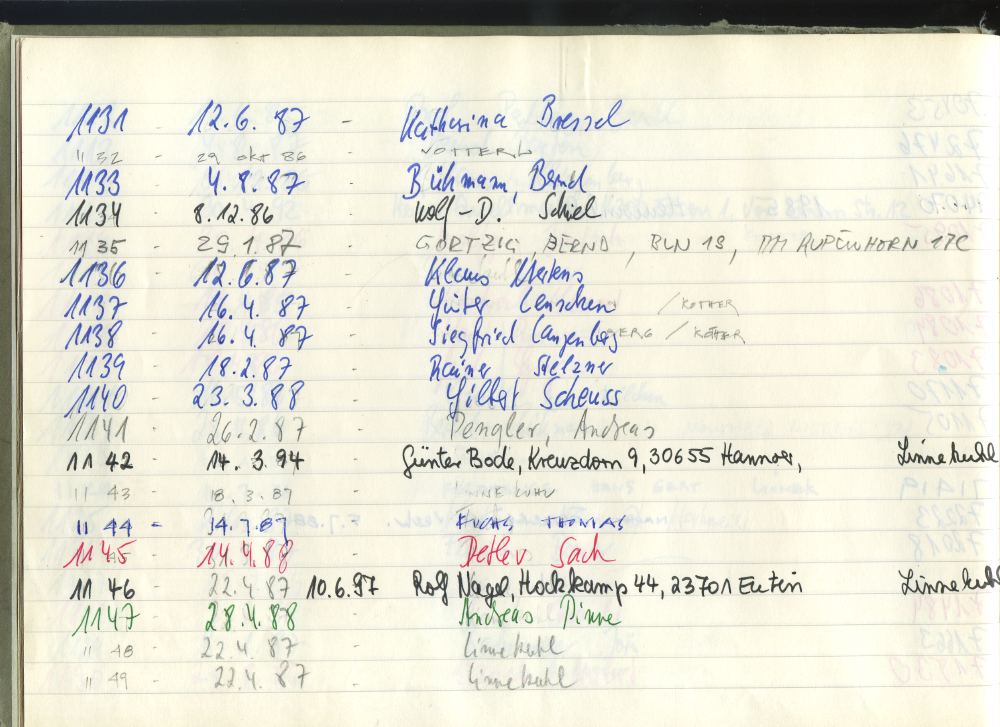 1131 - 12.6.87 - Katharina Bressel
1132 - 29 Okt 86 - VOTTERL
1133 - 4.8.87 - Bühmann, Bernd
1134 - 8.12.86 - Wolf-D. Schiel
1135 - 29.1.87 - GÖRTZIG, BERND, BLN 19, AM RUPENHORN 17C
1136 - 12.6.87 - Klaus Mertens
1137 - 16.4.87 - Günter Lenschen / KÖTHER
1138 - 16.4.87 - Siegfried Langenberg / KÖTHER
1139 - 18.2.87 - Rainer Stelzner
1140 - 23.3.88 - Gilbert Scheuss
1141 - 26.2.87 - Dengler, Andreas
1142 - 14.3.94 - Günter Bode, Kreuzdorn 9, 30655 Hannover, Linnekuhl
1143 - 18.3.87 - LINNEKUHL
1144 - 24.7.87 - FUCHS THOMAS
1145 - 14.4.88 Detlev Sach
1146 - 22.4.87 10.6.97 Rolf Nagel, Hochkamp 44, 23701 Eutin Linnekuhl
1147 - 28.4.88 - Andreas Pinne
1148 - 22.4.87 - Linnekuhl
1149 - 22.4.87 - Linnekuhl